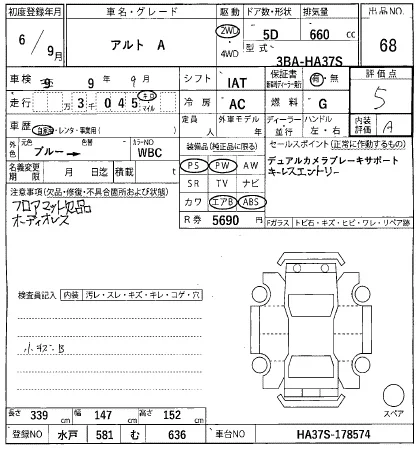 初度登録年月 車名・グレード 駆動 ドア数・形状 排気量 出品NO.
6/9月 アルト A 2WD 4WD 5D 660 cc 68
型式 3BA-HA37S
車検 9 9月 シフト IAT 保証書 有・無 評価点
走行 万 3千 045 キロ マイル 冷房 AC 燃料 G 5
車歴 自家用・レンタ・事業用( ) 定員 人 外車モデル 年 ディーラー 並行 ハンドル 左・右 内装評価 A
外色 元色 ブルー→ 色替 カラーNO WBC 装備品(純正品に限る) セールスポイント(正常に作動するもの)
名義変更期限 月 日迄 積載 t PS PW AW デュアルカメラブレーキサポート
注意事項(欠品・修復・不具合箇所および状態) SR TV ナビ キーレスエントリー
フロアマット欠品 カワ エアB ABS
オーディオレス R券 5690 円 Fガラス トビ石・キズ・ヒビ・ワレ・リペア跡
検査員記入 内装 汚レ・スレ・キズ・キレ・コゲ・穴
小キズB
スペア
長さ 339 cm 幅 147 cm 高さ 152 cm
登録NO 水戸 581 む 636 車台NO HA37S-178574